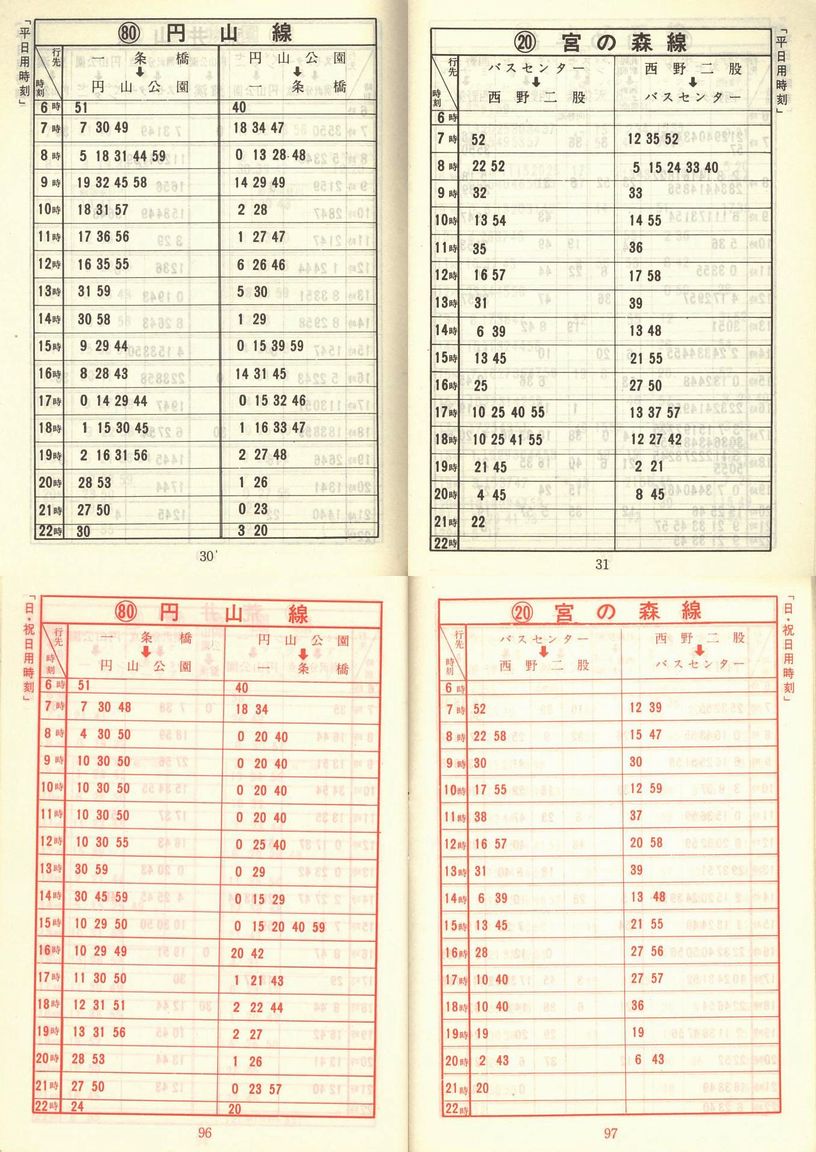 「平日用時刻」
⑧⓪ 円山線
行先
時刻
一条橋 円山公園
⬇ ⬇
円山公園 一条橋
6時 51 40
7時 7 30 49 18 34 47
8時 5 18 31 44 59 0 13 28 48
9時 19 32 45 58 14 29 49
10時 18 31 57 2 28
11時 17 36 56 1 27 47
12時 16 35 55 6 26 46
13時 31 59 5 30
14時 30 58 1 29
15時 9 29 44 0 15 39 59
16時 8 28 43 14 31 45
17時 0 14 29 44 0 15 32 46
18時 1 15 30 45 1 16 33 47
19時 2 16 31 56 2 27 48
20時 28 53 1 26
21時 27 50 0 23
22時 30 3 20
30
「平日用時刻」
⑳ 宮の森線
行先
時刻
バスセンター 西野二股
⬇ ⬇
西野二股 バスセンター
6時
7時 52 12 35 52
8時 22 52 5 15 24 33 40
9時 32 33
10時 13 54 14 55
11時 35 36
12時 16 57 17 58
13時 31 39
14時 6 39 13 48
15時 13 45 21 55
16時 25 27 50
17時 10 25 40 55 13 37 57
18時 10 25 41 55 12 27 42
19時 21 45 2 21
20時 4 45 8 45
21時 22
22時
31
「日・祝日用時刻」
⑧⓪ 円山線
行先
時刻
一条橋 円山公園
⬇ ⬇
円山公園 一条橋
6時 51 40
7時 7 30 48 18 34
8時 4 30 50 0 20 40
9時 10 30 50 0 20 40
10時 10 30 50 0 20 40
11時 10 30 50 0 20 40
12時 10 30 55 0 25 40
13時 30 59 0 29
14時 30 45 59 0 15 29
15時 10 29 50 0 15 20 40 59
16時 10 29 49 20 42
17時 11 30 50 1 21 43
18時 12 31 51 2 22 44
19時 13 31 56 2 27
20時 28 53 1 26
21時 27 50 0 23 57
22時 24 20
96
「日・祝日用時刻」
⑳ 宮の森線
行先
時刻
バスセンター 西野二股
⬇ ⬇
西野二股 バスセンター
6時
7時 52 12 39
8時 22 58 15 47
9時 30 30
10時 17 55 12 59
11時 38 37
12時 16 57 20 58
13時 31 39
14時 6 39 13 48
15時 13 45 21 55
16時 28 27 56
17時 10 40 27 57
18時 10 40 36
19時 19 19
20時 2 43 6 43
21時 20
22時
97